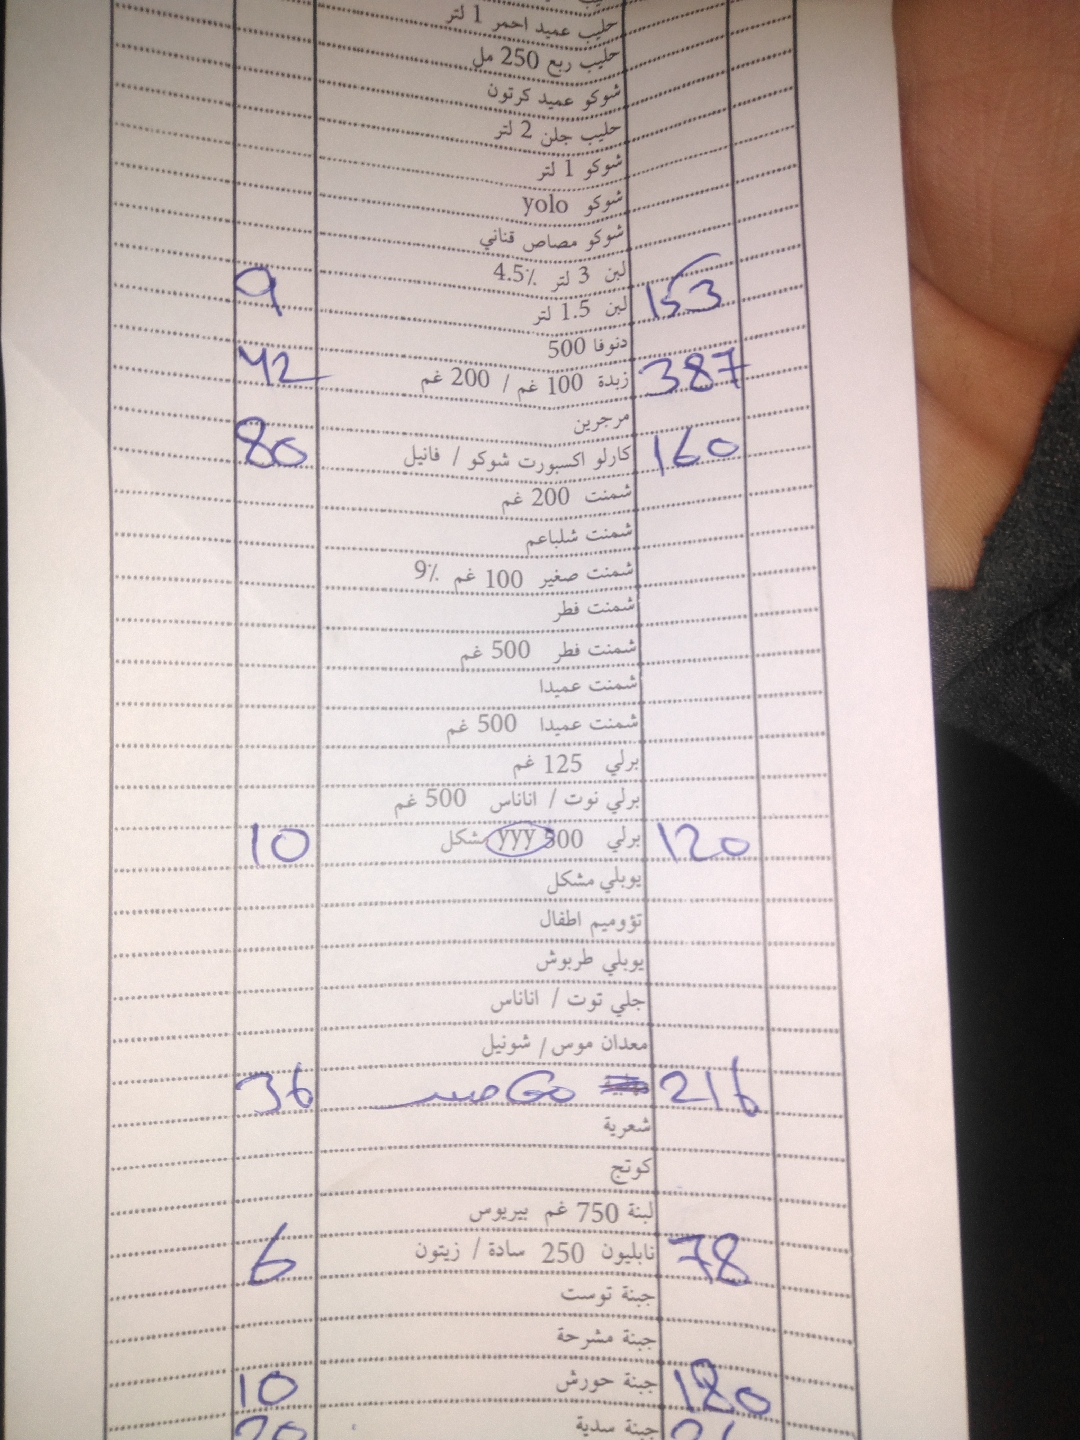 حليب عميد احمر 1 لتر
حليب ربع 250 مل
شوكو عميد كرتون
حليب جلن 2 لتر
شوكو 1 لتر
شوكو yolo
شوكو مصاص قناني
لبن 3 لتر 4.5٪
153 لبن 1.5 لتر 9
دنوفا 500
387 زبدة 100 غم / 200 غم 42
مرجرين
160 كارلو اكسبورت شوكو / فانيل 80
شمنت 200 غم
شمنت شلباعم
شمنت صغير 100 غم 9٪
شمنت فطر
شمنت فطر 500 غم
شمنت عميدا
شمنت عميدا 500 غم
برلي 125 غم
برلي نوت / اناناس 500 غم
120 برلي 500 yyy مشكل 10
يوبلي مشكل
تؤوميم اطفال
يوبلي طربوش
جلي توت / اناناس
معدان موس / شونيل
216 GO 36
شعرية
كوتج
لبنة 750 غم بيريوس
78 نابليون 250 سادة / زيتون 6
جبنة توست
جبنة مشرحة
180 جبنة حورش 10
جبنة سدية 20